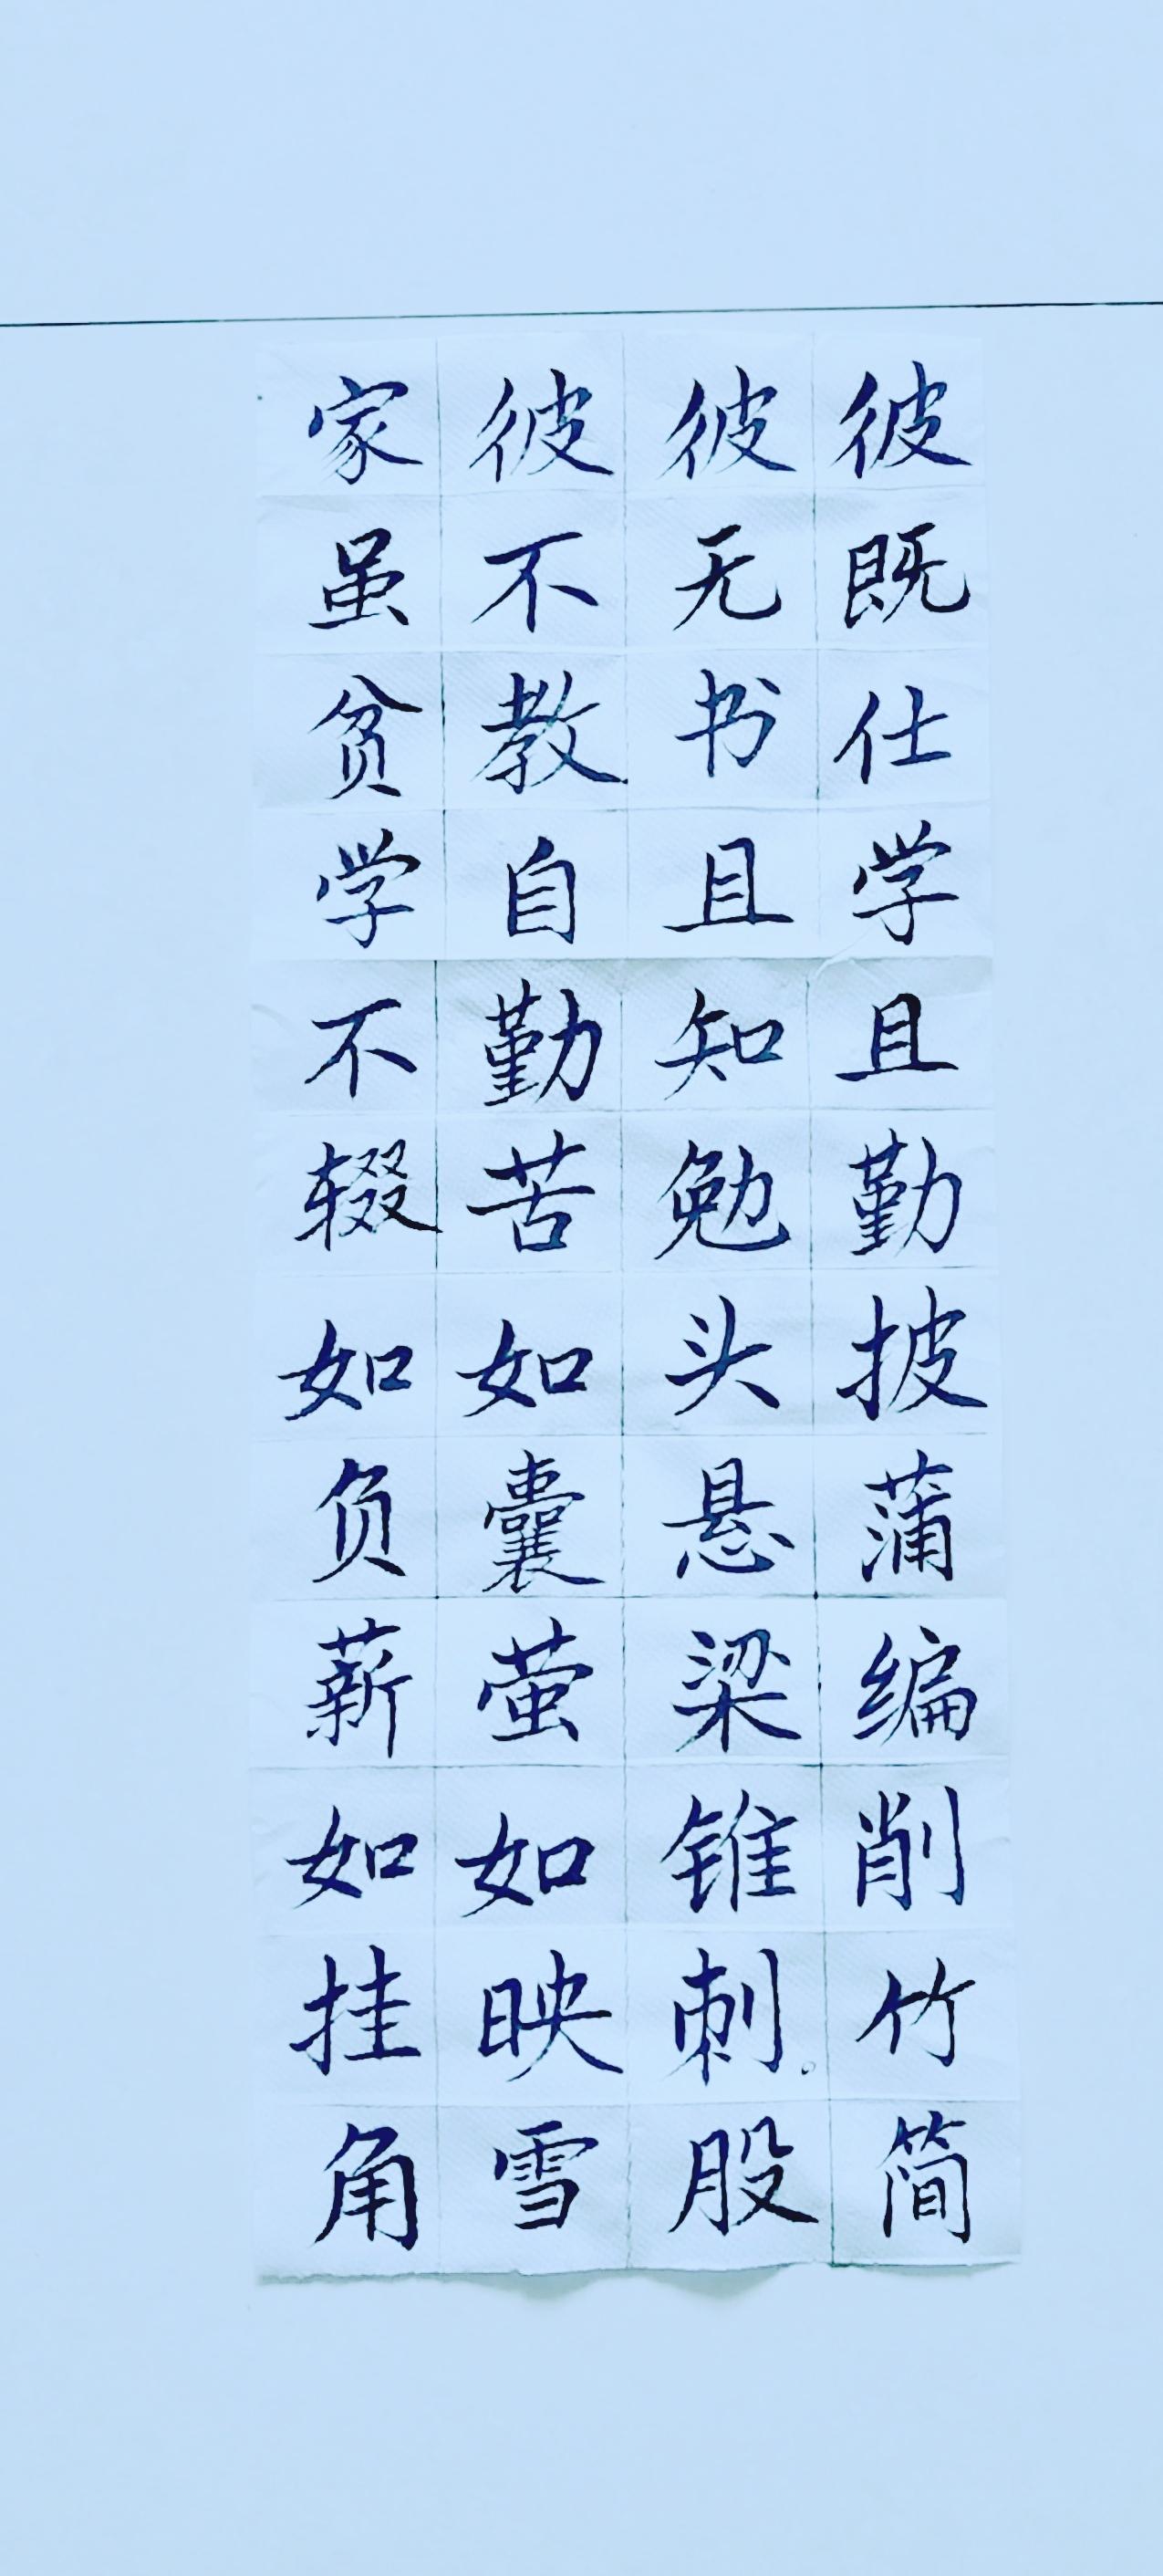 彼既仕学且勤披蒲编削竹简
彼无书且知勉头悬梁锥刺。股
彼不教自勤苦如囊萤如映雪
家虽贫学不辍如负薪如挂角